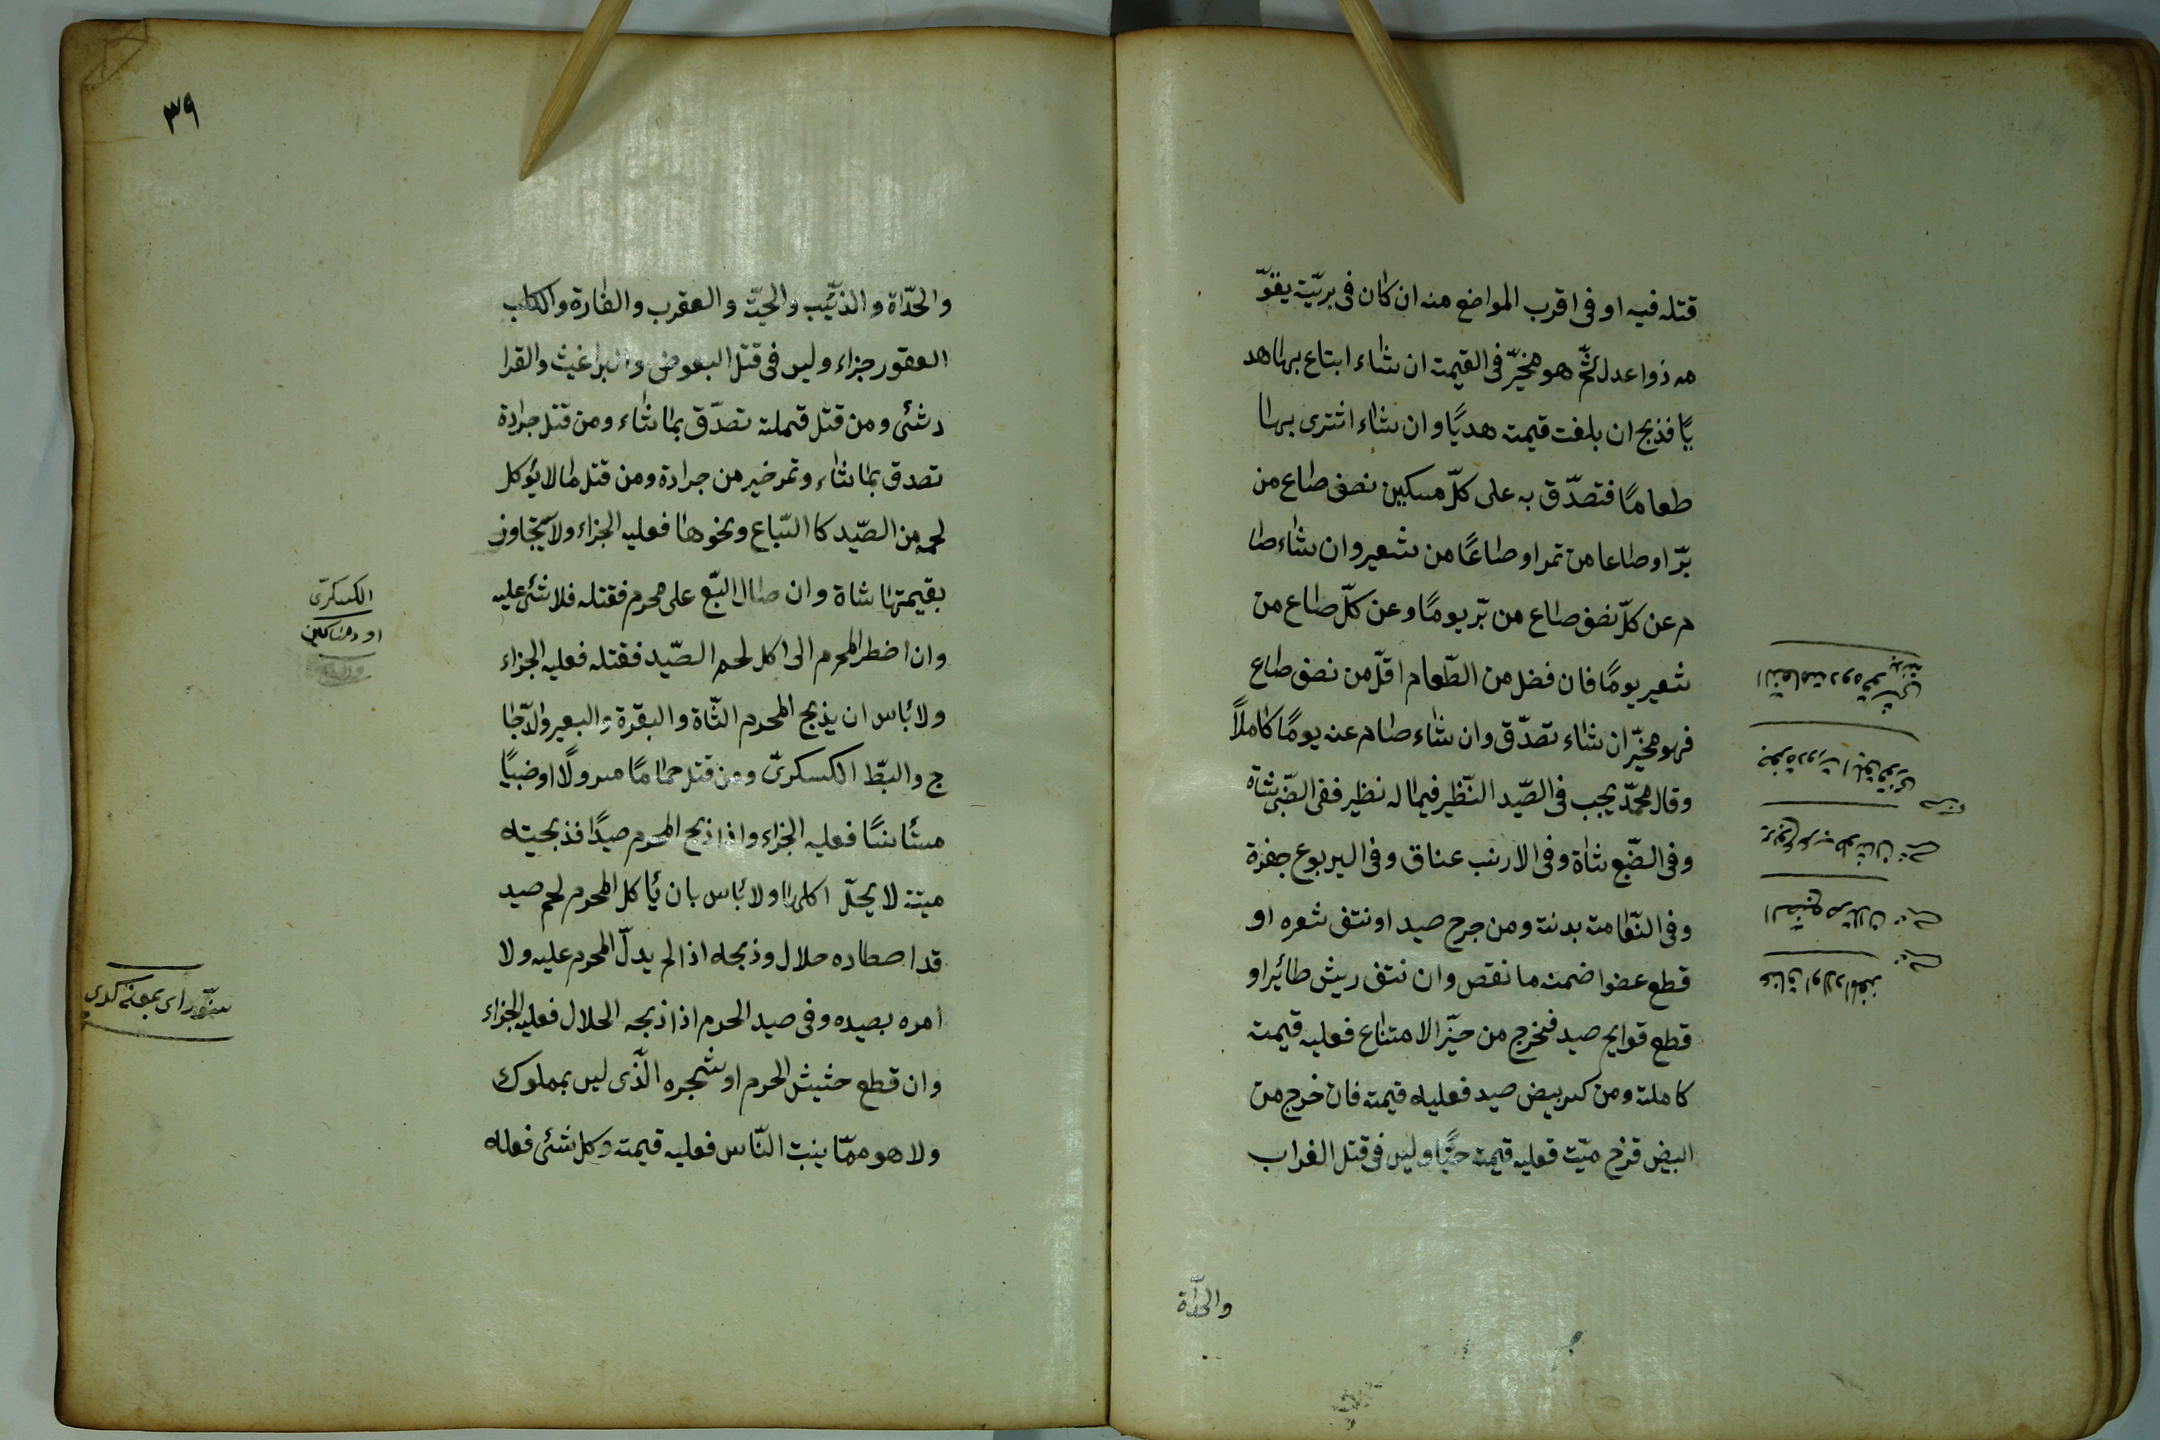 قتله فيه او فى اقرب المواضع منه ان كان فى بريّة يقوّ
مه ذوا عدل ثمّ هو مخيّر فى القيمة ان شاء ابتاع بها هد
يًا فذبح ان بلغت قيمته هديًا وان شاء اشترى بها
طعامًا فتصدّق به على كلّ مسكين نصف صاع من
برّ او صاعا من تمر او صاعًا من شعير وان شاء صا
م عن كلّ نصف صاع من برّ يومًا وعن كلّ صاع من
شعير يومًا فان فضل من الطّعام اقلّ من نصف صاع
فهو مخيّر ان شاء تصدّق وان شاء صام عنه يومًا كاملاً
وقال محمّد يجب فى الصّيد النّظير فيما له نظير ففى الضّبى شاة
وفى الضّبع شاة وفى الارنب عناق وفى اليربوع جفرة
وفى النّعامة بدنة ومن جرح صيد او نتف شعره او
قطع عضوا ضمنه ما نقص وان نتف ريش طائير او
قطع قوايم صيد فخرج من حيّز الامتناع فعليه قيمته
كاملة ومن كسر بيض صيد فعليه قيمته فان خرج من
البيض فرخ ميّت فعليه قيمته حيًّا وليس فى قتل الغراب
والحدّاة
عناق اولاد المعز
الضبع
يربوع
٣٩
والحدّاة والذئيب والحيّة والعقرب والفارة والكلب
العقور جزاء وليس فى قتل البعوض والبراغيث والقرا
د شئ ومن قتل قملة تصدّق بما شاء ومن قتل جرادة
تصدق بما شاء وتمر خير من جرادة ومن قتل ما لا يؤكل
لحمه من الصّيد كا السّباع ونحوها فعليه الجزاء ولا يتجاوز
بقيمتها شاة وان صال السّبع على محرم فقتله فلا شئ عليه
وان اضطر المحرم الى اكل لحم الصّيد فقتله فعليه الجزاء
ولا بأس ان يذبح المحرم الشّاة والبقرة والبعير والدّجا
ج والبطّ الكسكرىّ ومن قتل حمامًا مسرولًا او ضبيًا
مستأنسًا فعليه الجزاء واذا ذبح المحرم صيدًا فذبحيته
ميتة لا يحلّ اكلها ولا بأس بان يأكل المحرم لحم صيد
قد اصطاده حلال وذبحه اذا لم يدلّ المحرم عليه ولا
امره بصيده وفى صيد الحرم اذا ذبحه الحلال فعليه الجزاء
وان قطع حشيش الحرم او شجره الّذى ليس بمملوك
ولا هو ممّا ينبت النّاس فعليه قيمته وكل شئ فعله
الكسكرىّ
سنّور اى بمعنه كدى